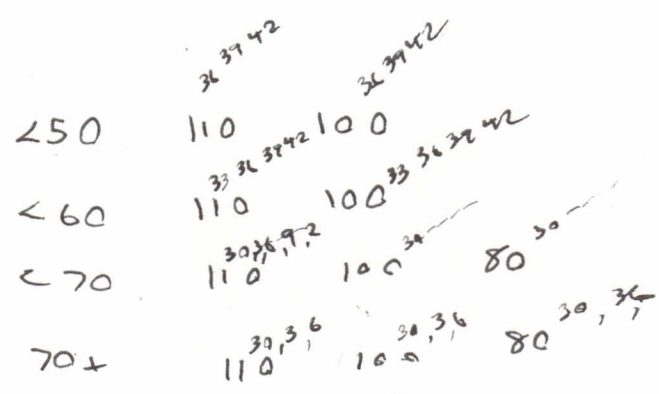 36 39 42 36 39 42
<50 110 100
33 36 39 42 33 36 39 42
<60 110 100
30,36,9,2 30 30
<70 110 100 80
30,3,6 30,3,6 30, 36,
70+ 110 100 80